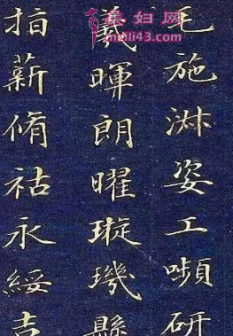 美妇网
meifu43.com
毛施淑姿工嚬研
羲暉朗曜璇璣懸
指薪脩祜永綏吉